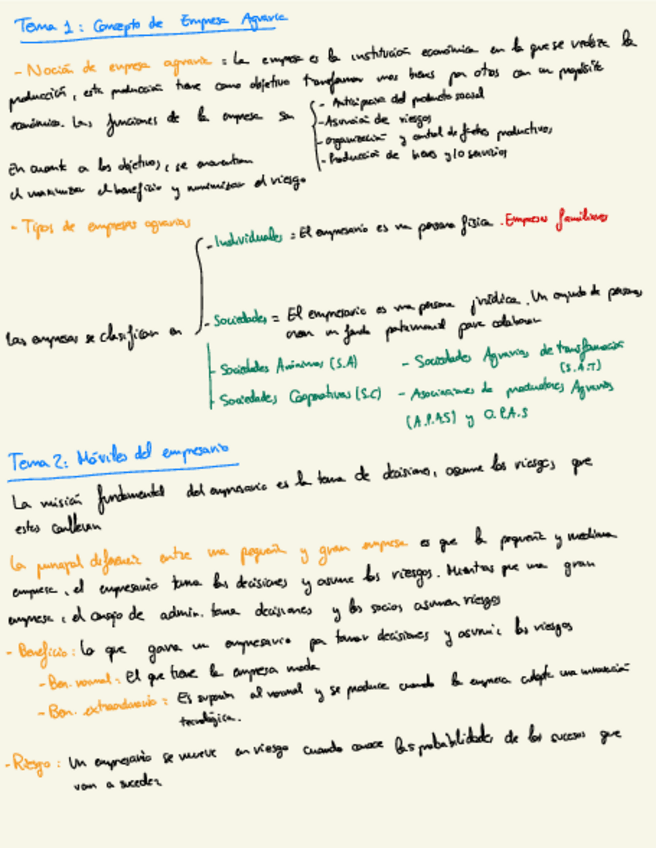 Tema 1: Concepto de Empresa Agraria
- Noción de empresa agraria = La empresa es la institución económica en la que se realiza la
producción, esta producción tiene como objetivo transformar unos bienes por otros con un propósito
económico. Las funciones de la empresa son
- Anticipación del producto social
- Asunción de riesgos
- Organización y control de factores productivos
- Producción de bienes y/o servicios
En cuanto a los objetivos, se encuentran
el maximizar el beneficio y minimizar el riesgo
- Tipos de empresas agrarias
Las empresas se clasifican en
- Individuales = El empresario es una persona física. Empresas familiares
- Sociedades = El empresario es una persona jurídica. Un conjunto de personas
crean un fondo patrimonial para colaborar
- Sociedades Anónimas (S.A)
- Sociedades Cooperativas (S.C)
- Sociedades Agrarias de transformación
(S.A.T)
- Asociaciones de productores Agrarios
(A.P.A.S) y O.P.A.S
Tema 2: Móviles del empresario
La misión fundamental del empresario es la toma de decisiones, asume los riesgos que
estas conllevan
La principal diferencia entre una pequeña y gran empresa es que la pequeña y mediana
empresa, el empresario toma las decisiones y asume los riesgos. Mientras que una gran
empresa, el consejo de admin. toma decisiones y los socios asumen riesgos
- Beneficio: Lo que gana un empresario por tomar decisiones y asumir los riesgos
- Ben. normal: El que tiene la empresa media
- Ben. extraordinario: Es superior al normal y se produce cuando la empresa adopta una innovación
tecnológica.
- Riesgo: Un empresario se mueve en riesgo cuando conoce las probabilidades de los sucesos que
van a suceder